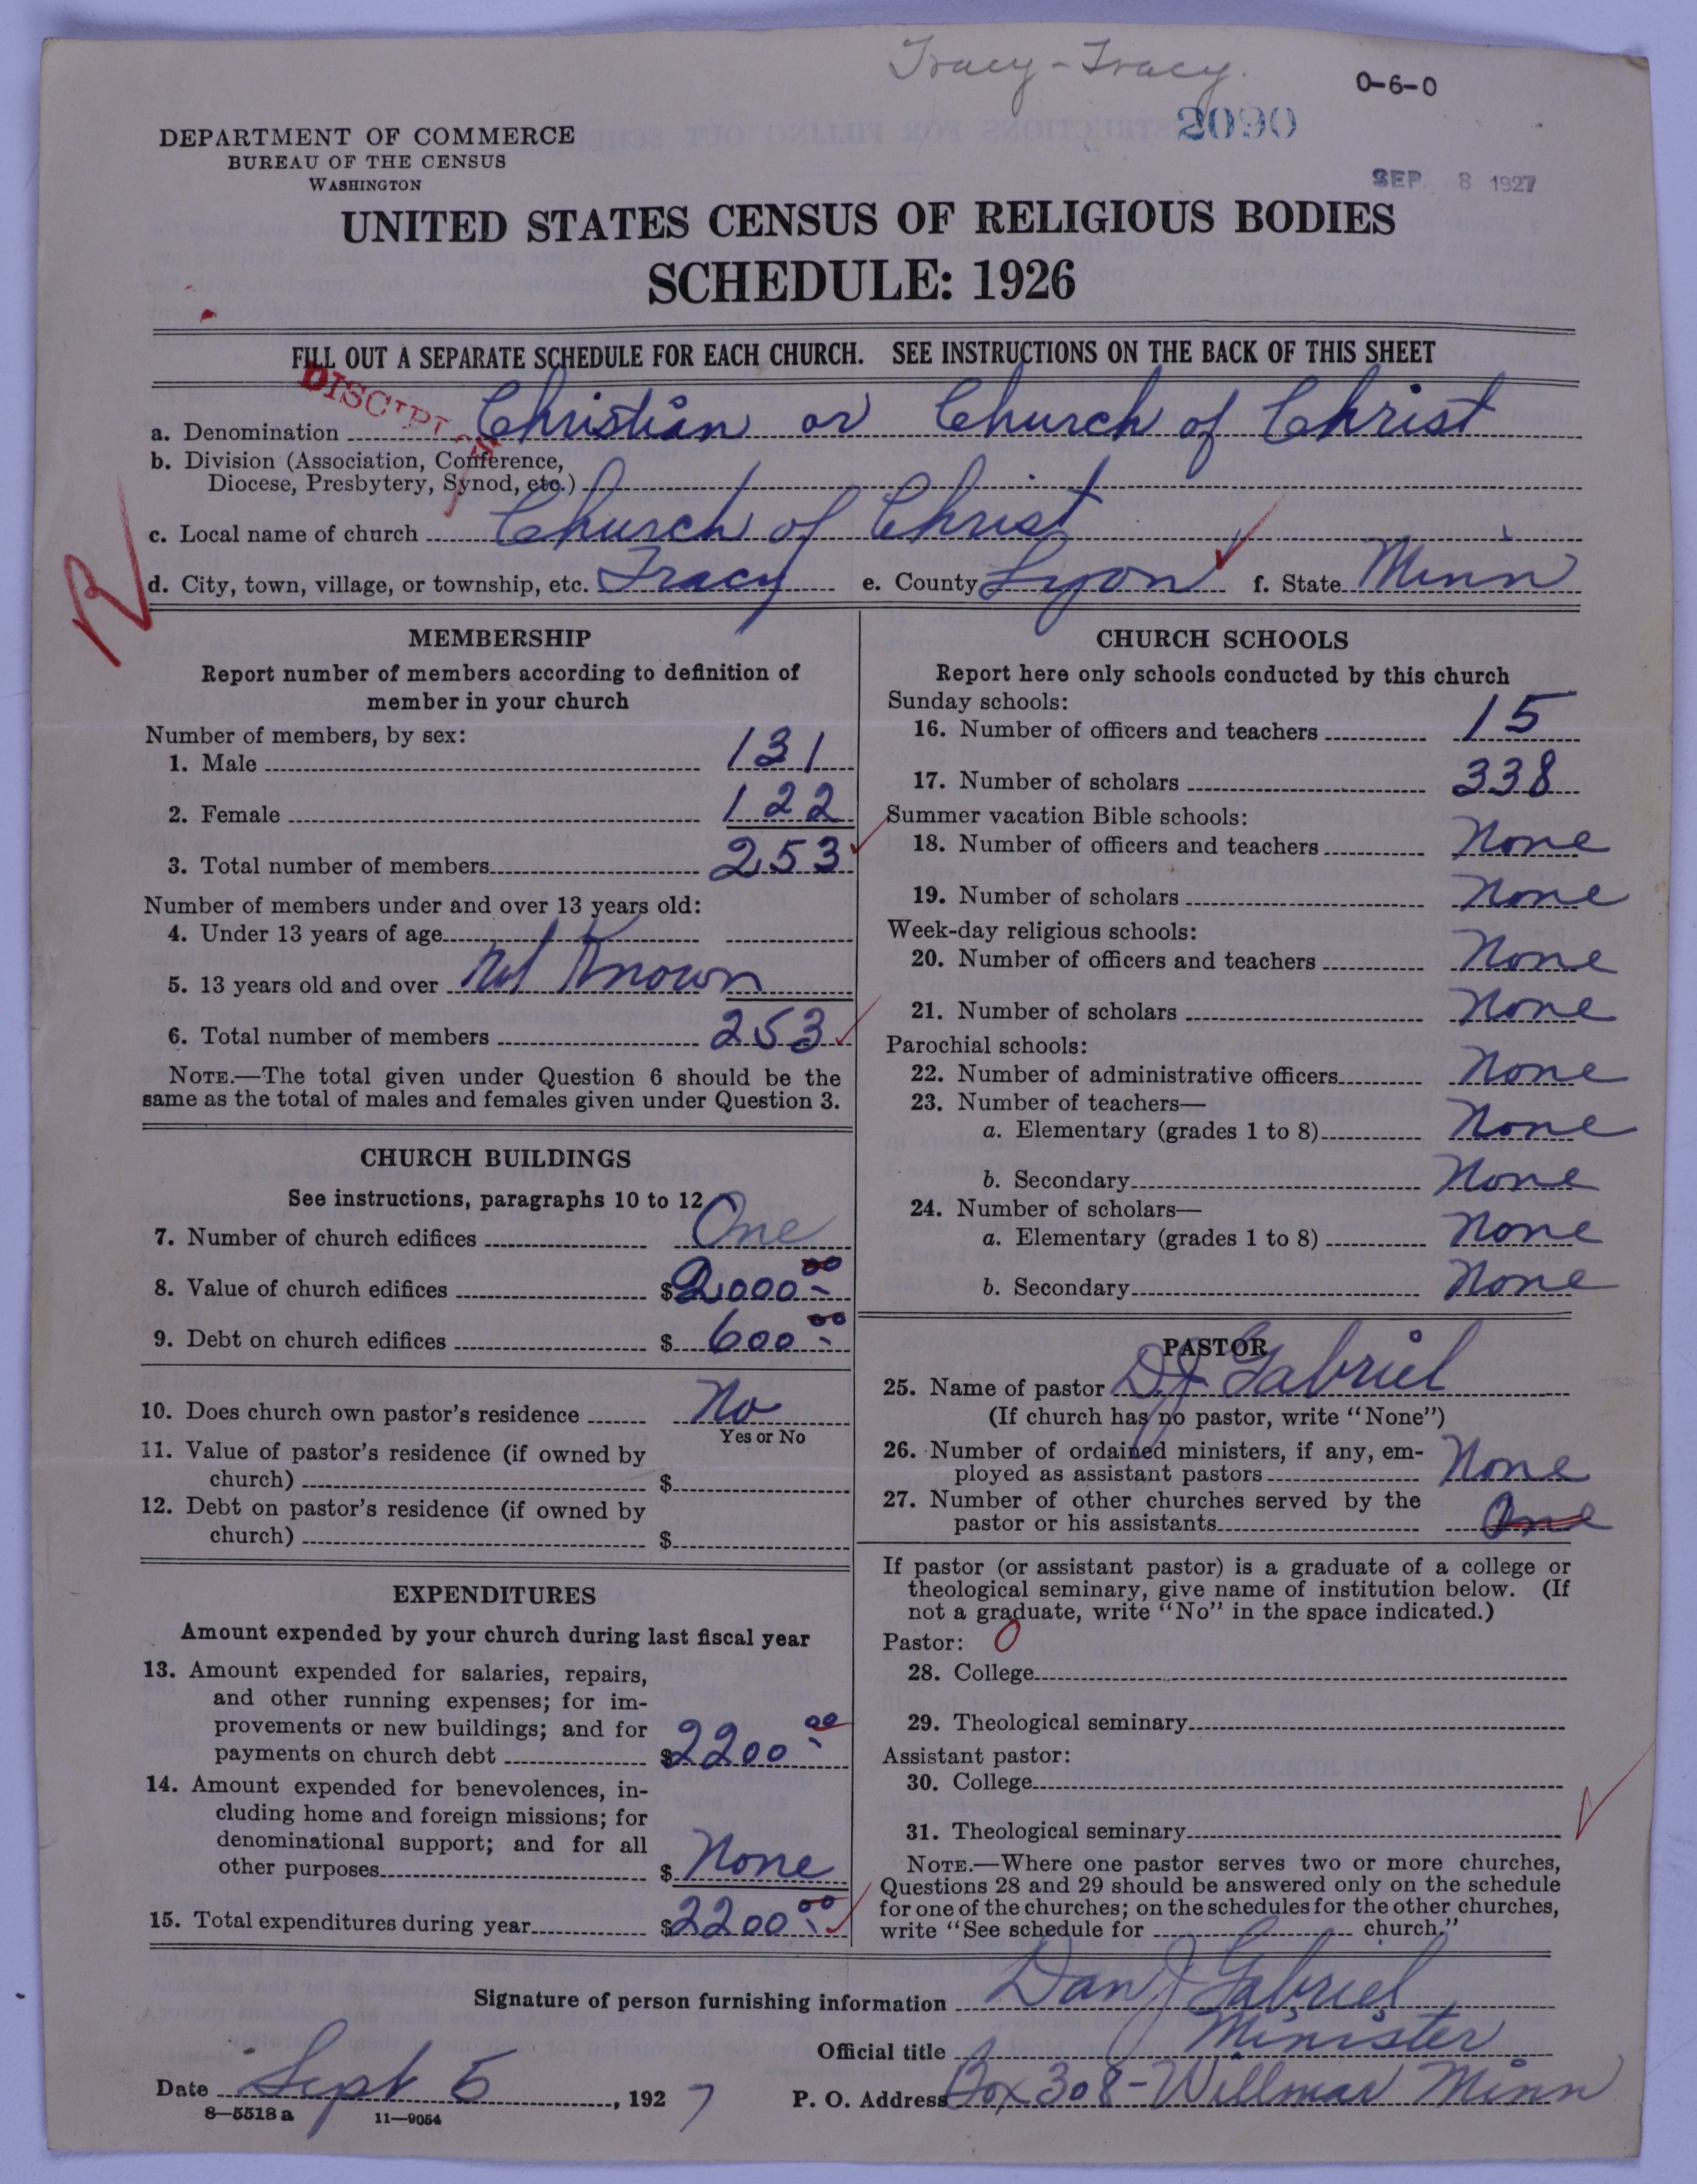 Tracy - Tracy.
0-6-0
2090
DEPARTMENT OF COMMERCE
BUREAU OF THE CENSUS
WASHINGTON
SEP. 8 1927
UNITED STATES CENSUS OF RELIGIOUS BODIES
SCHEDULE: 1926
FILL OUT A SEPARATE SCHEDULE FOR EACH CHURCH. SEE INSTRUCTIONS ON THE BACK OF THIS SHEET
a. Denomination Christian or Church of Christ
b. Division (Association, Conference,
Diocese, Presbytery, Synod, etc.)
c. Local name of church Church of Christ
R
d. City, town, village, or township, etc. Tracy e. County Lyon f. State Minn
MEMBERSHIP
Report number of members according to definition of
member in your church
Number of members, by sex:
1. Male 131
2. Female 122
3. Total number of members 253
Number of members under and over 13 years old:
4. Under 13 years of age
5. 13 years old and over Not Known
6. Total number of members 253
NOTE.—The total given under Question 6 should be the
same as the total of males and females given under Question 3.
CHURCH BUILDINGS
See instructions, paragraphs 10 to 12
7. Number of church edifices One
8. Value of church edifices $2000.00
9. Debt on church edifices $600.00
10. Does church own pastor's residence No
Yes or No
11. Value of pastor's residence (if owned by
church) $
12. Debt on pastor's residence (if owned by
church) $
EXPENDITURES
Amount expended by your church during last fiscal year
13. Amount expended for salaries, repairs,
and other running expenses; for im-
provements or new buildings; and for
payments on church debt $2200.00
14. Amount expended for benevolences, in-
cluding home and foreign missions; for
denominational support; and for all
other purposes $ None
15. Total expenditures during year $2200.00
CHURCH SCHOOLS
Report here only schools conducted by this church
Sunday schools:
16. Number of officers and teachers 15
17. Number of scholars 338
Summer vacation Bible schools:
18. Number of officers and teachers None
19. Number of scholars None
Week-day religious schools:
20. Number of officers and teachers None
21. Number of scholars None
Parochial schools:
22. Number of administrative officers None
23. Number of teachers—
a. Elementary (grades 1 to 8) None
b. Secondary None
24. Number of scholars—
a. Elementary (grades 1 to 8) None
b. Secondary None
PASTOR
25. Name of pastor D J Gabriel
(If church has no pastor, write "None")
26. Number of ordained ministers, if any, em-
ployed as assistant pastors None
27. Number of other churches served by the
pastor or his assistants One
If pastor (or assistant pastor) is a graduate of a college or
theological seminary, give name of institution below. (If
not a graduate, write "No" in the space indicated.)
Pastor: 0
28. College
29. Theological seminary
Assistant pastor:
30. College
31. Theological seminary
NOTE.—Where one pastor serves two or more churches,
Questions 28 and 29 should be answered only on the schedule
for one of the churches; on the schedules for the other churches,
write "See schedule for church."
Signature of person furnishing information Dan J Gabriel
Official title Minister
Date Sept 5, 1927 P. O. Address Box 308 - Willmar Minn
8-5518 a 11-9054